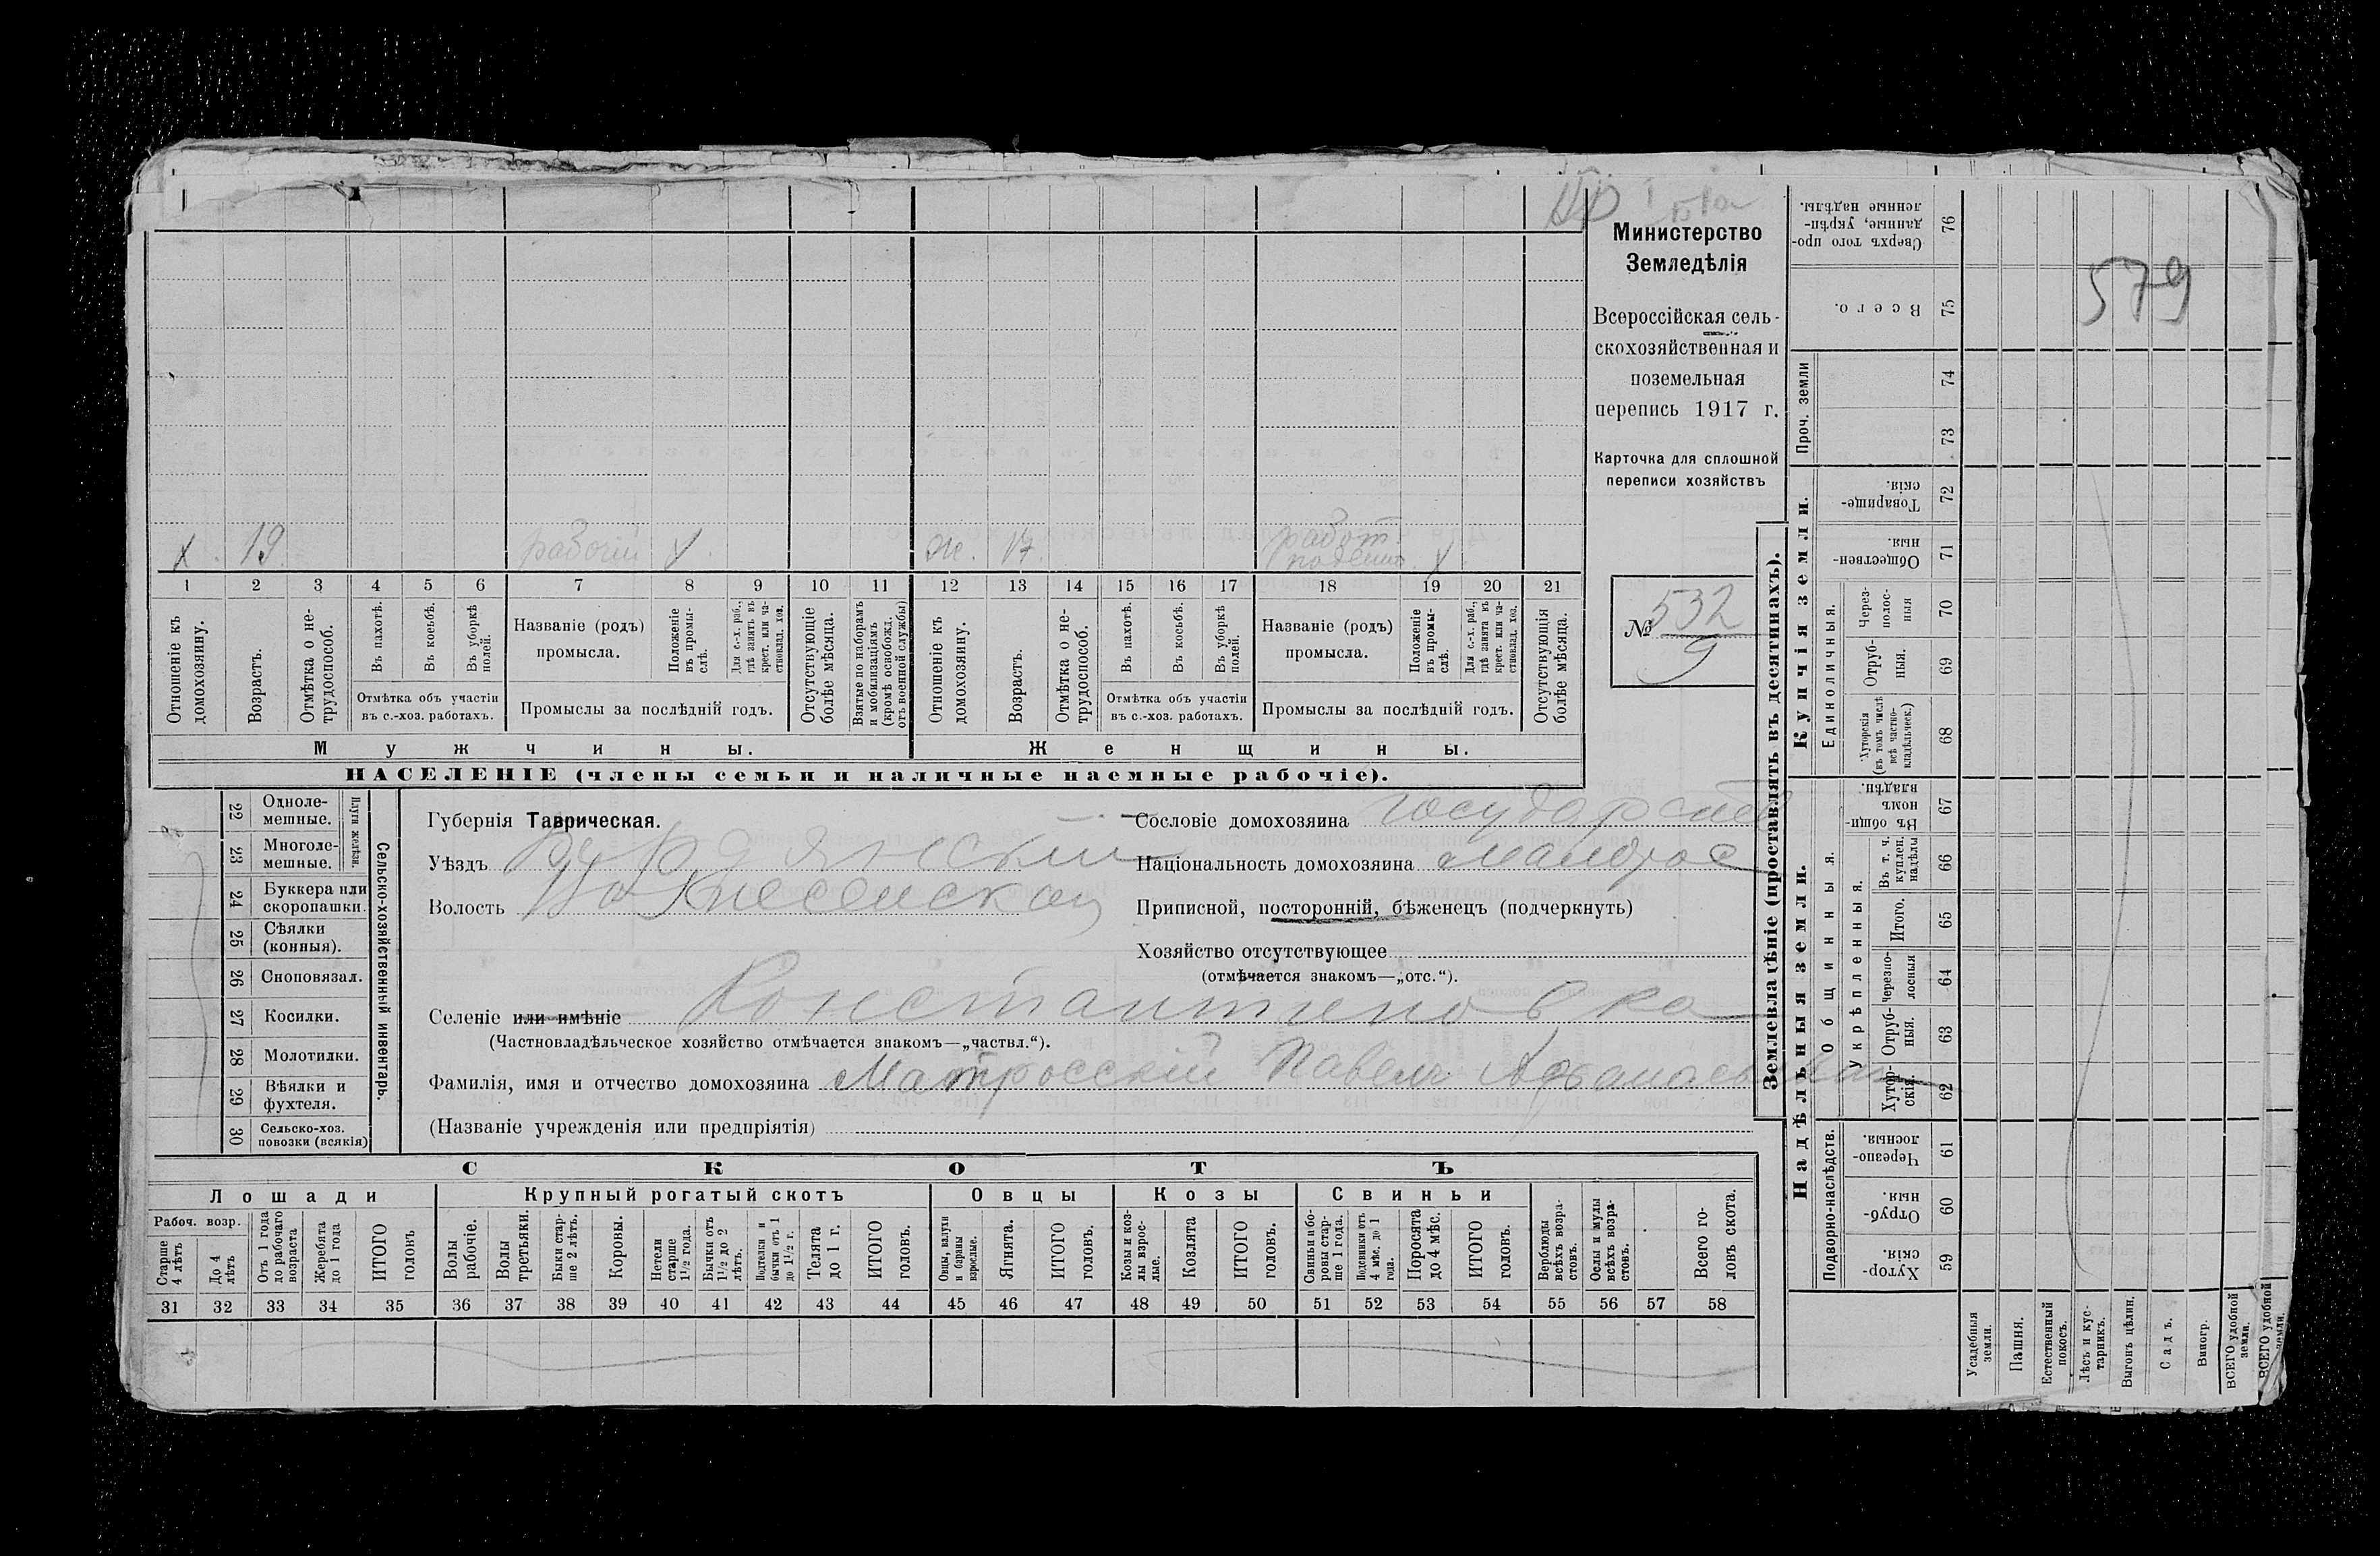 Министерство
Земледѣлія
Всероссійская сель-
скохозяйственная и
поземельная
перепись 1917 г.
Карточка для сплошной
переписи хозяйствъ
№ 532
9
579
х 19 рабочій х ж. 17 работ.
поденно х
1 2 3 4 5 6 7 8 9 10 11 12 13 14 15 16 17 18 19 20 21
Отношеніе къ домохозяину.
Возрастъ.
Отмѣтка о не-
трудоспособ.
Въ пахотѣ.
Въ косьбѣ.
Въ уборкѣ
полей.
Отмѣтка объ участіи
въ с.-хоз. работахъ.
Названіе (родъ)
промысла.
Положеніе
въ промы-
слѣ.
Для с.-х. раб.,
гдѣ занятъ въ
крест. или ча-
стновлад. хоз.
Промыслы за послѣдній годъ.
Отсутствующіе
болѣе мѣсяца.
Взятые по наборамъ
и мобилизаціямъ
(кромѣ освобожд.
отъ военной службы)
Отношеніе къ
домохозяину.
Возрастъ.
Отмѣтка о не-
трудоспособ.
Въ пахотѣ.
Въ косьбѣ.
Въ уборкѣ
полей.
Отмѣтка объ участіи
въ с.-хоз. работахъ.
Названіе (родъ)
промысла.
Положеніе
въ промы-
слѣ.
Для с.-х. раб.,
гдѣ занята въ
крест. или ча-
стновлад. хоз.
Промыслы за послѣдній годъ.
Отсутствующія
болѣе мѣсяца.
Мужчины.
Женщины.
НАСЕЛЕНІЕ (члены семьи и наличные наемные рабочіе).
22 Одноле-
мешные.
23 Многоле-
мешные.
Плуги желѣзн.
24 Буккера или
скоропашки.
25 Сѣялки
(конныя).
26 Сноповязал.
27 Косилки.
28 Молотилки.
29 Вѣялки и
фухтеля.
30 Сельско-хоз.
повозки (всякія)
Сельско-хозяйственный инвентарь.
Губернія Таврическая.
Уѣздъ Бердянскій
Волость
Сословіе домохозяина государств
Національность домохозяина малорос
Приписной, посторонній, бѣженецъ (подчеркнуть)
Хозяйство отсутствующее
(отмѣчается знакомъ—„отс.“).
Селеніе или имѣніе Константиновка
(Частновладѣльческое хозяйство отмѣчается знакомъ—„частвл.“).
Фамилія, имя и отчество домохозяина Матросскій Павелъ Афанасьевич
(Названіе учрежденія или предпріятія)
СКОТЪ
Лошади
Крупный рогатый скотъ
Овцы
Козы
Свиньи
Рабоч. возр.
Старше
4 лѣтъ
До 4
лѣтъ
Отъ 1 года
до рабочаго
возраста
Жеребята
до 1 года
ИТОГО
головъ
Волы
рабочіе.
Волы
третьяки.
Быки стар-
ше 2 лѣтъ.
Коровы.
Нетели
старше
1½ года.
Бычки отъ
1½ до 2
лѣтъ.
Подтелки и
бычки отъ 1
до 1½ г.
Телята
до 1 г.
ИТОГО
головъ.
Овцы, валухи
и бараны
взрослые.
Ягнята.
ИТОГО
головъ.
Козы и коз-
лы взрос-
лые.
Козлята
ИТОГО
головъ.
Свиньи и бо-
ровы стар-
ше 1 года.
Подсвинки отъ
4 мѣс. до 1
года.
Поросята
до 4 мѣс.
ИТОГО
головъ.
Верблюды
всѣхъ возра-
стовъ.
Ослы и мулы
всѣхъ возра-
стовъ.
Всего го-
ловъ скота.
31 32 33 34 35 36 37 38 39 40 41 42 43 44 45 46 47 48 49 50 51 52 53 54 55 56 57 58
Землевладѣніе (проставлять въ десятинахъ).
Надѣльныя земли.
Купчія земли.
Проч. земли
Сверхъ того про-
данные, укрѣп-
ленные надѣлы. 76
Всего. 75
74
73
Товарище-
скія. 72
Обществен-
ныя. 71
Единоличныя.
Через-
полос-
ныя 70
Отруб-
ныя. 69
Хуторскія
(въ томъ числѣ
всѣ частно-
владѣльческ.) 68
Общинныя.
Въ общи-
номъ
владѣн. 67
Укрѣпленныя.
Въ т. ч.
куплен.
надѣлы 66
Итого. 65
Черезпо-
лосныя 64
Отруб-
ныя. 63
Хутор-
скія. 62
Подворно-наслѣдств.
Черезпо-
лосныя. 61
Отруб-
ныя. 60
Хутор-
скія. 59
Усадебныя
земли.
Пашня.
Естественный
покосъ.
Лѣсъ и кус-
тарникъ.
Выгонъ цѣлин.
Садъ.
Виногр.
ВСЕГО удобной
земли.
ВСЕГО удобной
земли.